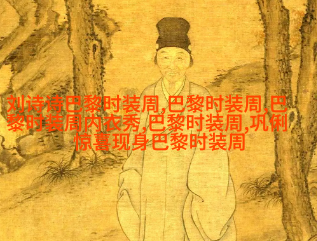 刘诗诗巴黎时装周,巴黎时装周,巴
黎时装周内衣秀,巴黎时装周,巩俐
惊喜现身巴黎时装周